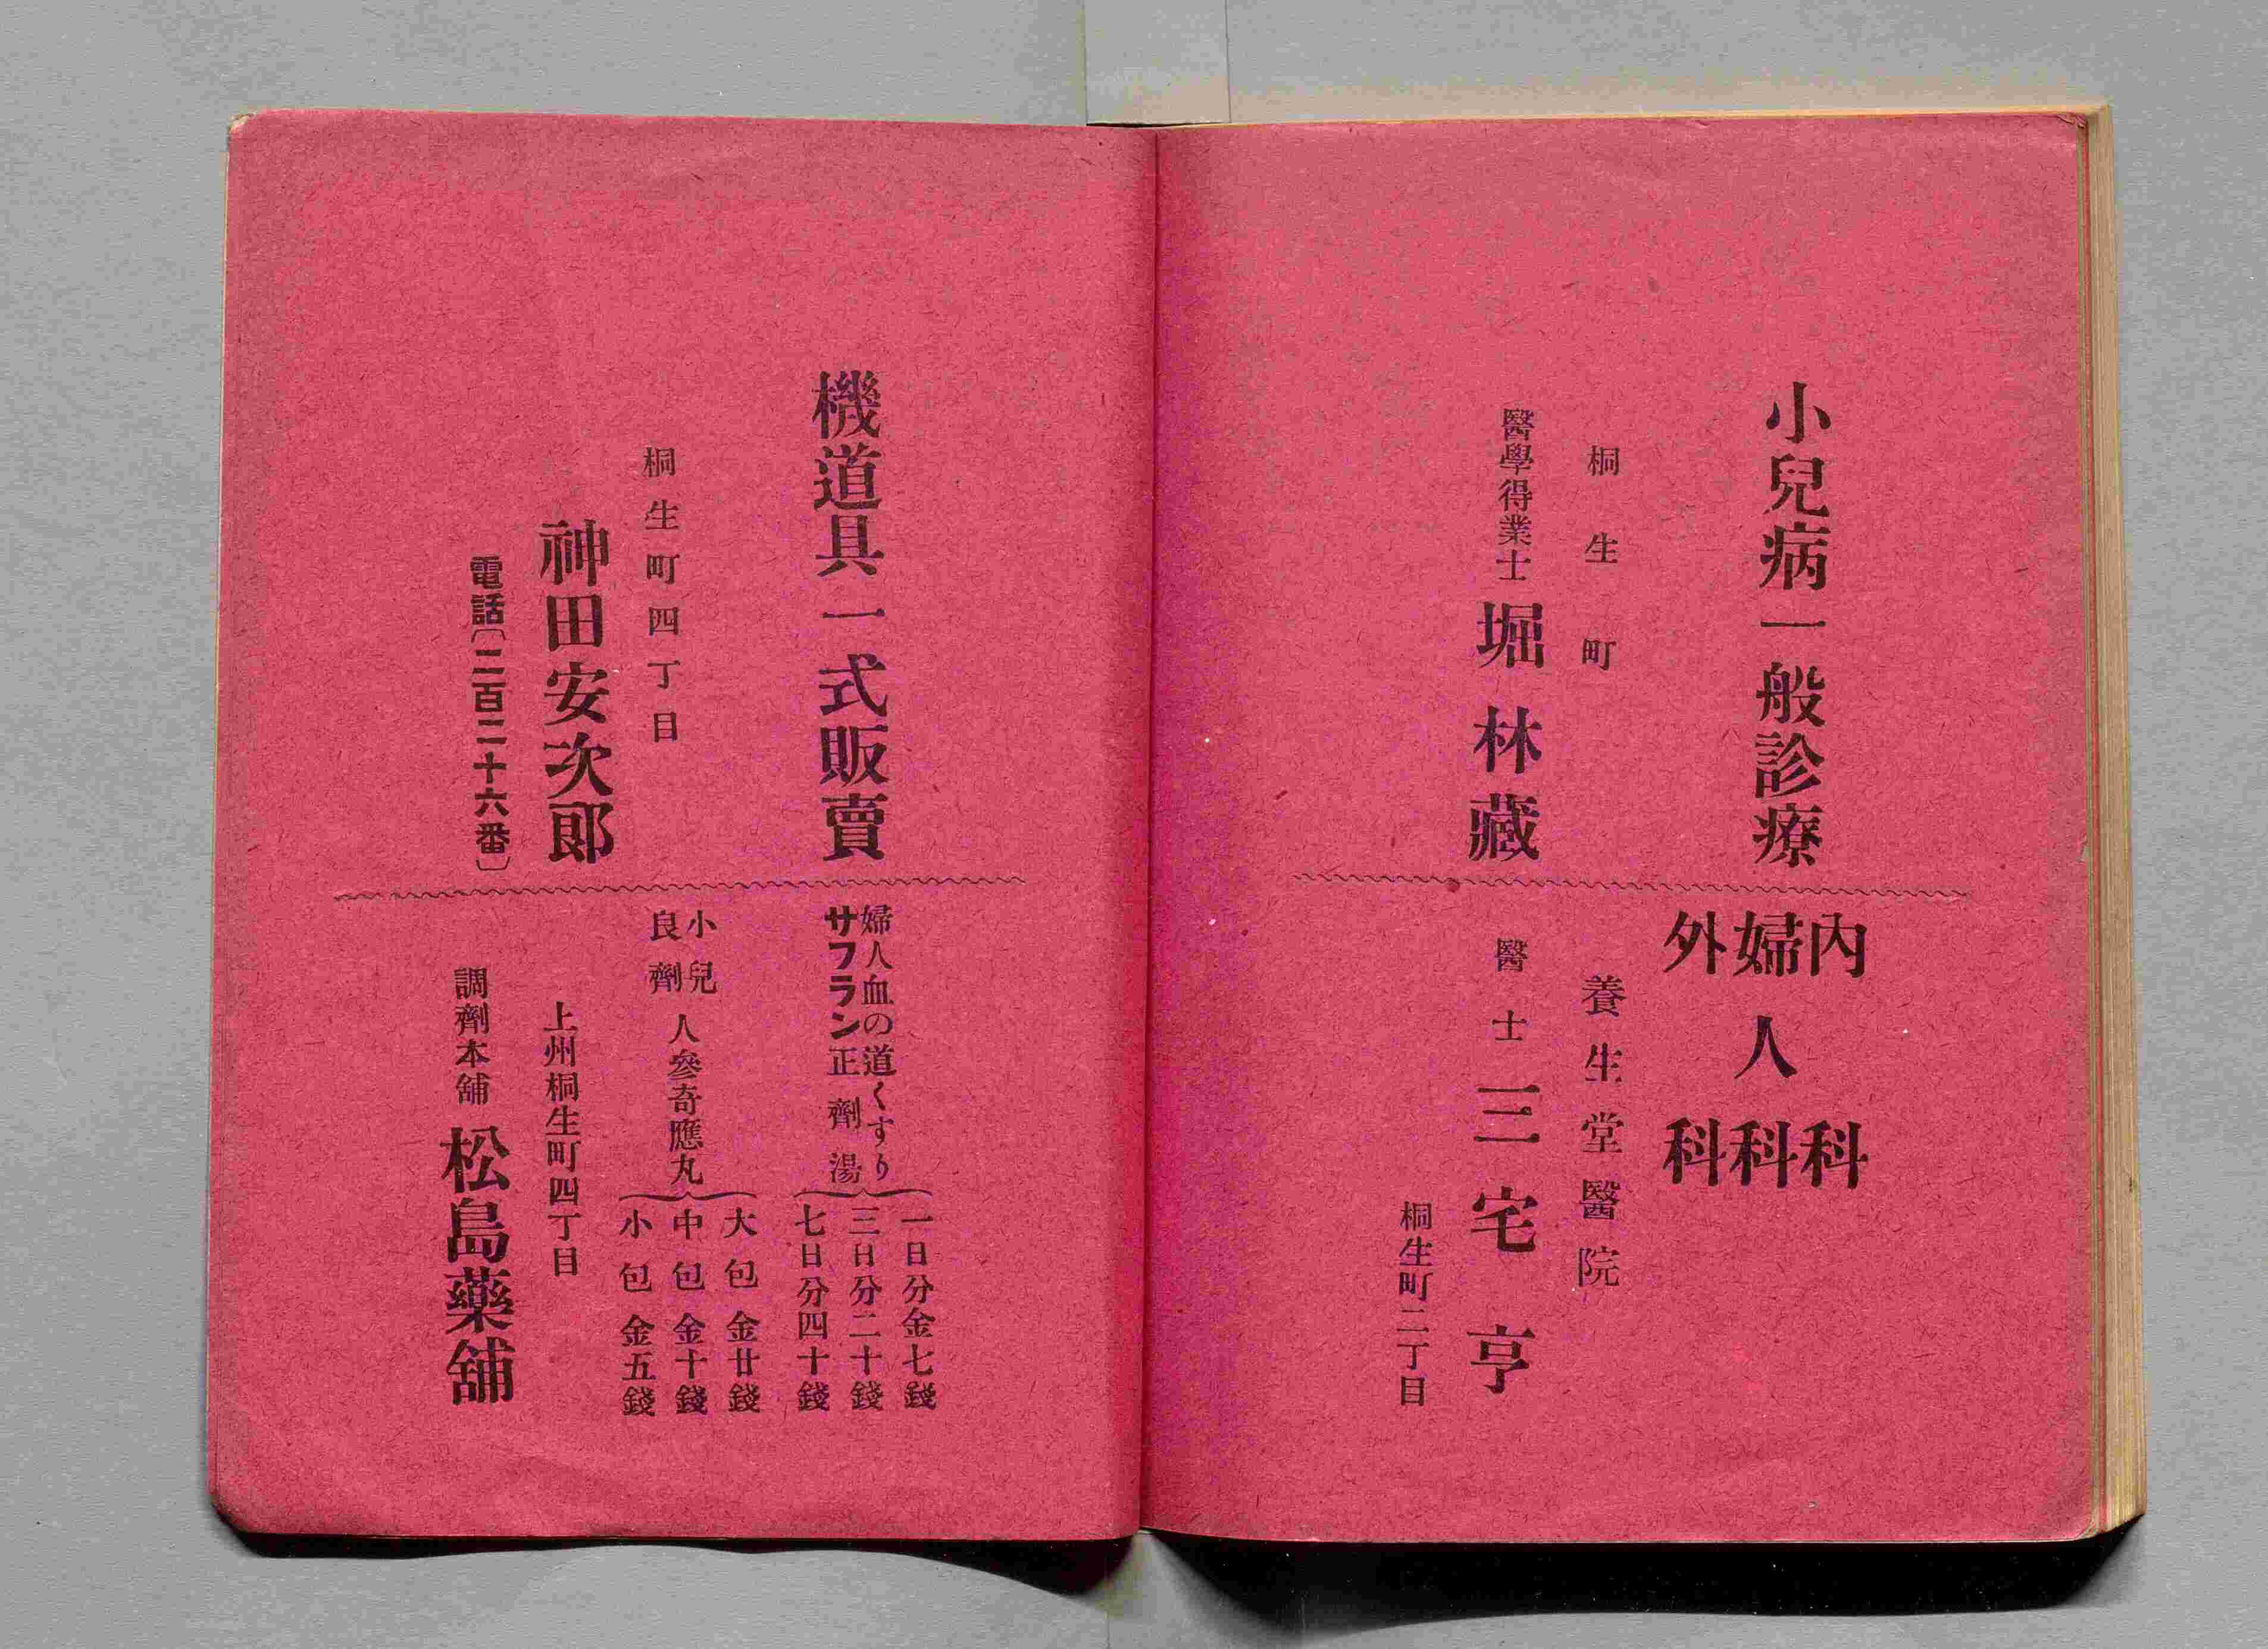 小兒病一般診療
桐生町
醫學得業士 堀林藏
內科
婦人科
外科
養生堂醫院
醫士 三宅亨
桐生町二丁目
機道具一式販賣
桐生町四丁目
神田安次郎
電話〔二百二十六番〕
婦人血の道くすり
サフラン正劑湯
一日分金七錢
三日分二十錢
七日分四十錢
小兒
良劑
人參奇應丸
大包金廿錢
中包金十錢
小包金五錢
上州桐生町四丁目
調劑本舖 松島藥舖